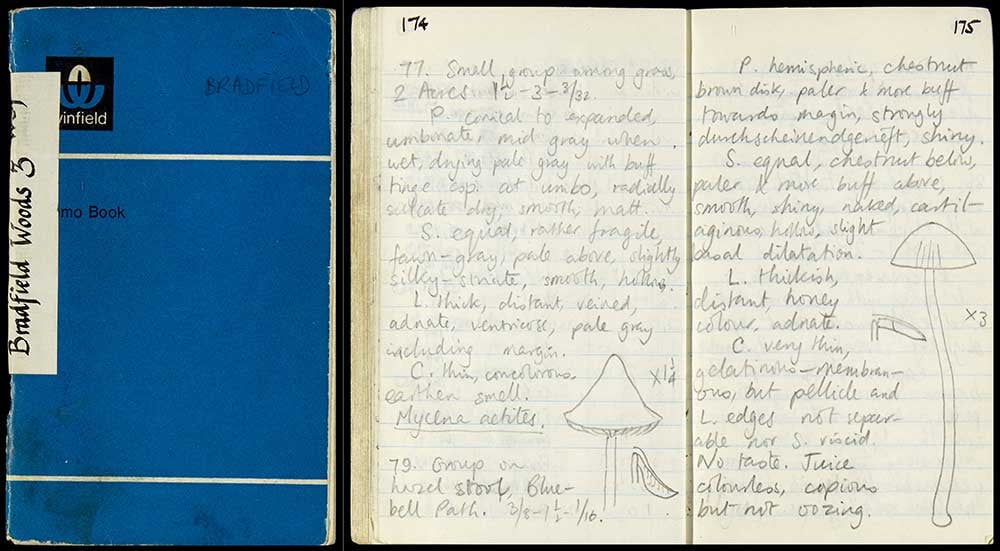 BRADFIELD
winfield
mo Book
Bradfield Woods 3
174
77. Small group among grass,
2 Acres 1½-3-3/32.
P. conical to expanded,
umbonate, mid gray when
wet, drying pale gray with buff
tinge esp. at umbo, radially
sulcate dry, smooth, matt.
S. equal, rather fragile,
fawn-gray, pale above, slightly
silky-striate, smooth, hollow.
L. thick, distant, veined,
adnate, ventricose, pale gray
including margin.
C. thin, concolorous.
earthen smell.
Mycena aetites.
×1¼
79. Group on
hazel stool, Blue-
bell Path. 3/8-1½-1/16.
175
P. hemispheric, chestnut
brown disk, paler & more buff
towards margin, strongly
durchscheinendgerieft, shiny.
S. equal, chestnut below,
paler & more buff above,
smooth, shiny, naked, cartil-
aginous, hollow, slight
basal dilatation.
L. thickish,
distant, honey
colour, adnate.
×3
C. very thin,
gelatinous-membran-
ous, but pellicle and
L. edges not separ-
able nor S. viscid.
No taste. Juice
colourless, copious
but not oozing.